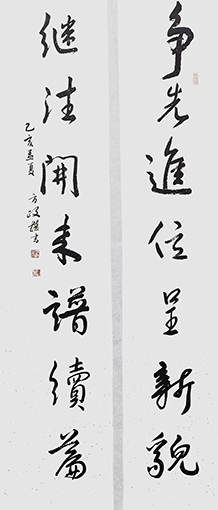 争先進位呈新貌
继往開来譜續篇
己亥孟夏 方政权书